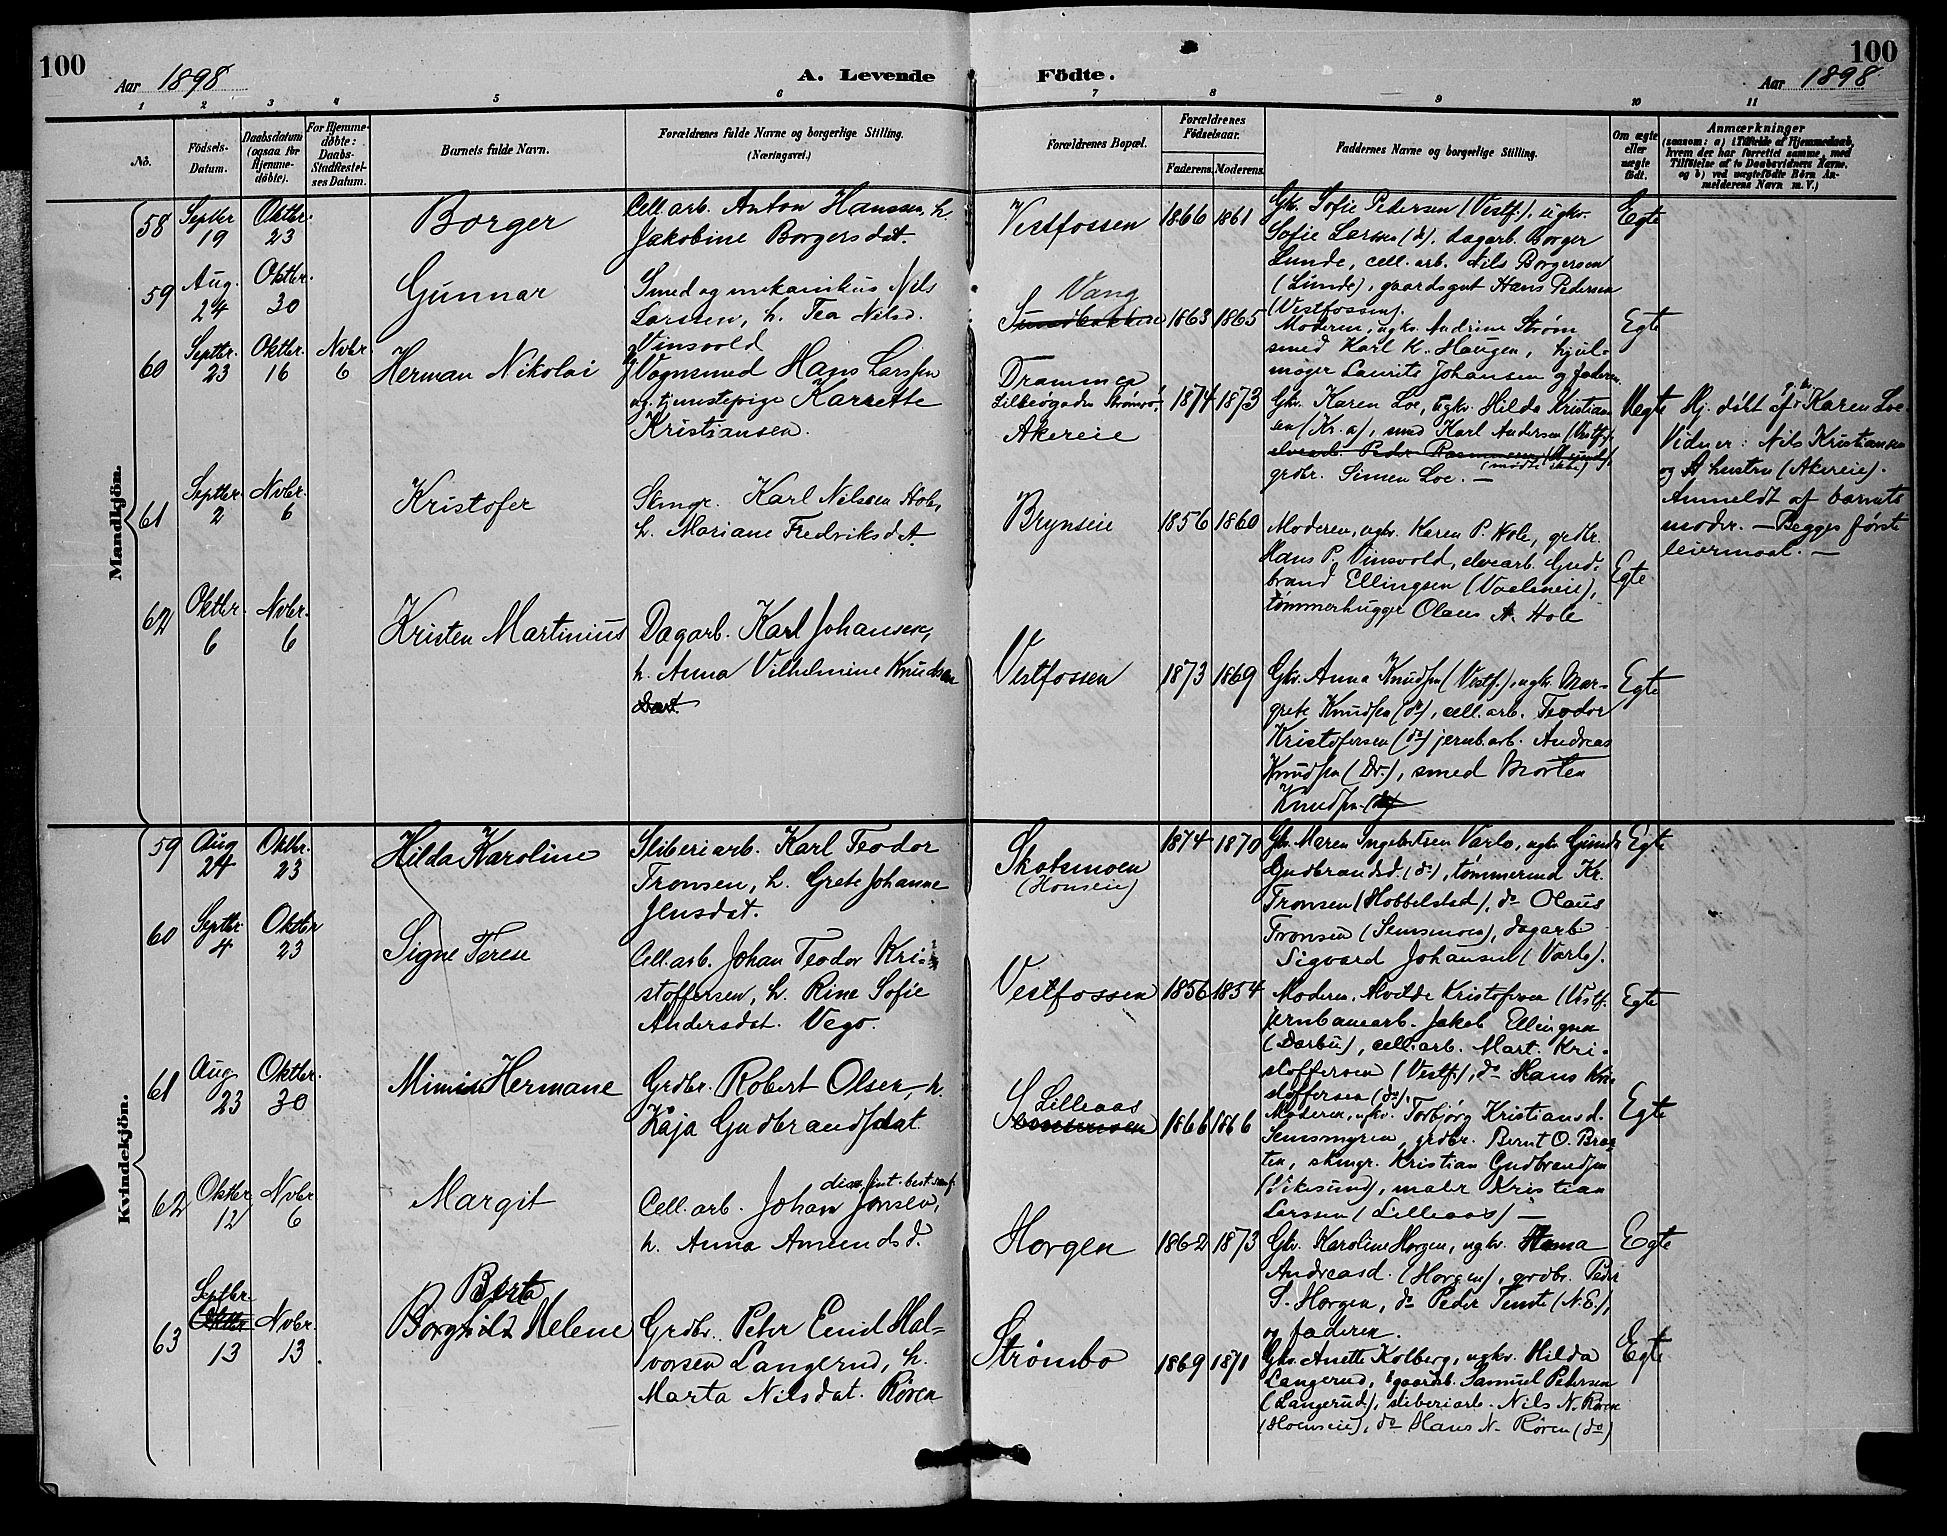 100
Aar 1898
A. Levende
Födte.
Aar 1898
100
1 2 3 4 5 6 7 8 9 10 11
No.
Födsels-Datum.
Daabsdatum (ogsaa for Hjemme-döbte).
For Hjemme-döbte: Daabs-Stadfæstel-ses Datum.
Barnets fulde Navn.
Forældrenes fulde Navne og borgerlige Stilling. (Næringsvei.)
Forældrenes Bopæl.
Forældrenes Födselsaar.
Faderens. Moderens.
Faddernes Navne og borgerlige Stilling.
Om ægte eller uægte födt.
Anmærkninger
(saasom: a) i Tilfælde af Hjemmedaab, hvem der har forrettet samme, med Tilföielse af to Daabsvidners Navne, og b) ved uægtefödte Börn An-melderens Navn m. V.)
Mandkjön.
58
Septbr 19
Oktbr. 23
Borger
Cell.arb. Anton Hanssen, h.
Jakobine Borgersdat.
Vestfossen
1866 1861
Gkv. Sofie Pedersen (Vestf.), ugkv.
Sofie Larsen (do), dagarb. Borger
Lunde, cell.arb. Nils Borgersen
(Lunde), gaardsgut Hans Pedersen
(Vestfossen).
Egte
59
Aug. 24
Oktbr. 30
Gunnar
Smed og mekanikus Nils
Larssen, h. Tea Nilsd.
Vinsvold
Vang
1863 1865
Moderen, ugkv. Andrine Strøm
smed Karl K. Haugen, hjul-
mager Laurits Johansen og faderen.
Egte
60
Septbr. 23
Oktbr. 16
Novbr. 6
Herman Nikolai
Vognsmed Hans Larssen
og tjenestepige Karnette
Kristiansen.
Drammen
Akereie
1874 1873
Gkv. Karen Loe, ugkv. Hilda Kristian
sen (Kr.a), smed Karl Andersen (Vestf.)
elvearb. Peder Rasmussen
(mødte ikke)
grdbr. Simen Loe. —
Uegte
Hj. døbt af Karen Loe.
Vidner: Nils Kristiansen
og hustru (Akereie).
Anmeldt af barnets
moder. — Begges første
leiermaal. —
61
Septbr. 2
Novbr. 6
Kristofer
Skmgr. Karl Nilssen Hole,
h. Mariane Fredriksdat.
Brynseie
1856 1860
Moderen, ugkv. Karen P. Hole, grdbr.
Hans P. Vinsvold, elvearb. Gud-
brand Ellingsen,
tømmerhugger Olaus A. Hole
Egte
62
Oktbr. 6
Novbr. 6
Kristen Martinius
Dagarb. Karl Johansen,
h. Anna Vilhelmine Knudsen
Vestfossen
1873 1869
Gkv. Anna Knudsen (Vestf.), ugkv. Mar-
grete Knudsen (do), cell.arb. Teodor
Kristofersen (do) jernb.arb. Andreas
Knudsen (Dr.), smed Morten
Knudsen
Egte
Kvindekjön.
59
Aug 24
Oktbr. 23
Hilda Karoline
Sliberiarb. Karl Teodor
Tronsen, h. Grete Johanne
Jensdat.
Skotsmoen
(Honseie)
1874 1870
Gkv. Maren Ingebretsen Varlo, ugkv. Gunda
Gudbrandsd. (do), tømmermd Kr.
Tronsen (Hobbelstad), do Olaus
Tronsen (Semsmoen), dagarb
Sigvard Johansen (Varlo).
Egte
60
Septbr 4
Oktbr 23
Signe Terese
Cell.arb. Johan Teodor Kri-
stoffersen, h. Rine Sofie
Andersdat. Vego.
Vestfossen
1856 1854
Moderen, Kristofersen (Vestf.
jernbanearb. Jakob Ellingsen
(Darbu), cell.arb. Mart. Kri-
stoffersen (Vestf.), do Hans Kri-
stoffersen (do).
Egte
61
Aug 23
Oktbr. 30
Mimi Hermane
Grdbr. Robert Olsen, h.
Kaja Gudbrandsdat
Lilleaas
1866 1866
Moderen, ugkv. Torbjørg Kristiansd.
Semsmyren, grdbr. Bernt O. Braa-
ten, skmgr. Kristian Gudbrandsen
(Vikesund), maler Kristian
Larssen (Lilleaas) —
Egte
62
Oktbr 12
Novbr 6
Margit
Cell.arb. Johan Jonsen,
h. Anna Amundsd.
Horgen
1862 1873
Gkv. Karoline Horgen, ugkv. Anna
Andreasd. (Horgen), grdbr. Peder
S. Horgen, do Peder Temte (N.E.),
og faderen.
Egte
63
Septbr
13
Novbr. 13
Berta
Borghild Helene
Grdbr. Peter Emil Hal-
vorsen Langerud, h.
Marta Nilsdat. Røren
Strømbo
1869 1871
Gkv. Anette Kolberg, ugkv. Hilda
Langerud, gaardb. Samuel Petersen
(Langerud), sliberiarb. Nils N. Røren
(Hoenseie), do Hans N. Røren (do)
Egte